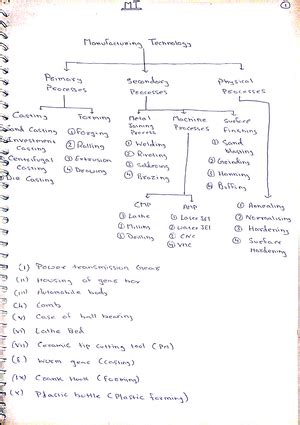 MT
1
Manufacturing Technology
Primary Processes
Secondary Processes
Physical Processes
Casting
① Sand Casting
② Investment Casting
③ Centrifugal Casting
④ Die Casting
Forming
① Forging
② Rolling
③ Extrusion
④ Drawing
Metal Joining Process
① Welding
② Riveting
③ Soldering
④ Brazing
Machine Processes
Surface Finishing
① Sand blasting
② Grinding
③ Honning
④ Buffing
CMP
① Lathe
② Milling
③ Drilling
AMP
① Laser JET
② Water JET
③ CNC
④ VMC
① Annealing
② Normalising
③ Hardening
④ Surface Hardening
(i) Power transmission Gear
(ii) Housing of gear box
(iii) Automobile body
(iv) Comb
(v) Case of ball bearing
(vi) Lathe Bed
(vii) Ceramic tip cutting tool (PM)
Worm gear (casting)
(ix) Crane Hook (Forming)
(x) Plastic bottle (Plastic forming)